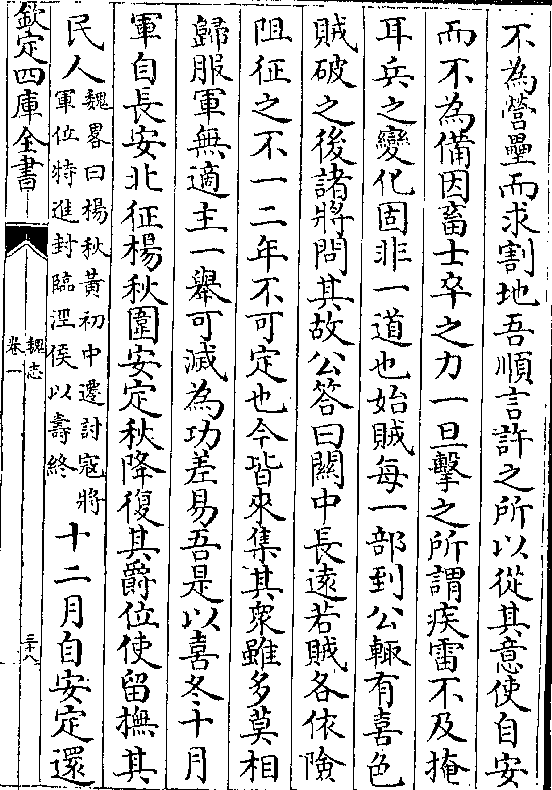 不為營壘而求割地吾順言許之所以從其意使自安
而不為備因畜士卒之力一旦擊之所謂疾雷不及掩
耳兵之變化固非一道也始賊每一部到公輒有喜色
賊破之後諸將問其故公答曰關中長遠若賊各依險
阻征之不一二年不可定也今皆來集其衆雖多莫相
歸服軍無適主一舉可滅為功差易吾是以喜冬十月
軍自長安北征楊秋圍安定秋降復其爵位使留撫其
民人
魏畧曰楊秋黃初中遷討寇將
軍位特進封臨涇侯以壽終
十二月自安定還
欽定四庫全書
魏志
卷一
三十八